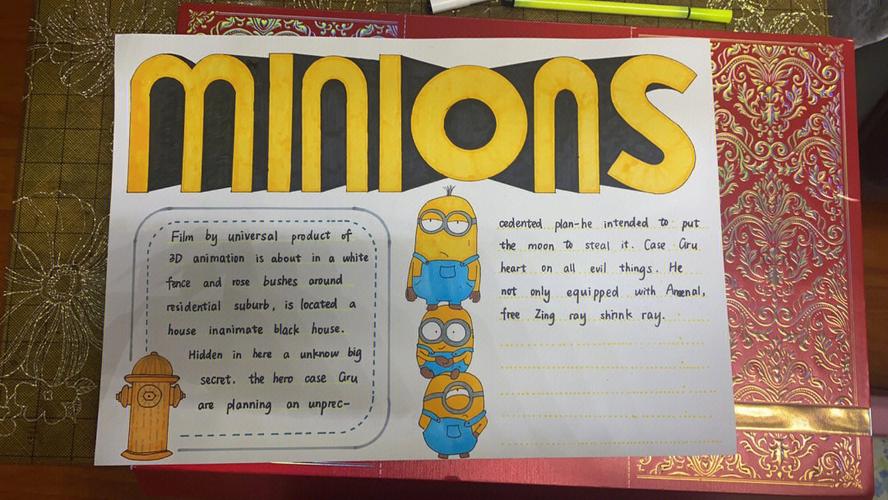 MINIONS
Film by universal product of
3D animation is about in a white
fence and rose bushes around
residential suburb, is located a
house inanimate black house.
Hidden in here a unknow big
secret. the hero case Gru
are planning an unprec-
cedented plan-he intended to put
the moon to steal it. Case Gru
heart on all evil things. He
not only equipped with Arsenal,
free Zing ray shrink ray.